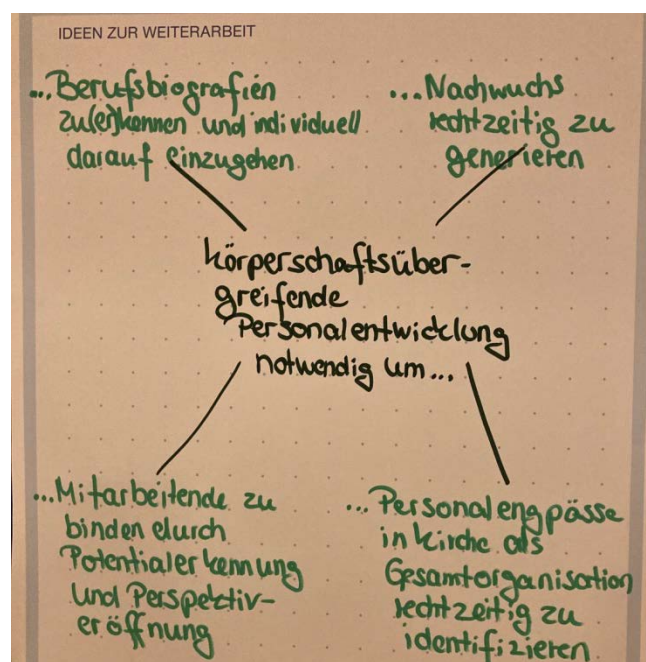 IDEEN ZUR WEITERARBEIT
...Berufsbiografien
zu(er)kennen und individuell
darauf einzugehen
...Nachwuchs
rechtzeitig zu
generieren
körperschaftsüber-
greifende
Personalentwicklung
notwendig um...
...Mitarbeitende zu
binden durch
Potentialerkennung
und Perspektiv-
eröffnung
...Personalengpässe
in Kirche als
Gesamtorganisation
rechtzeitig zu
identifizieren